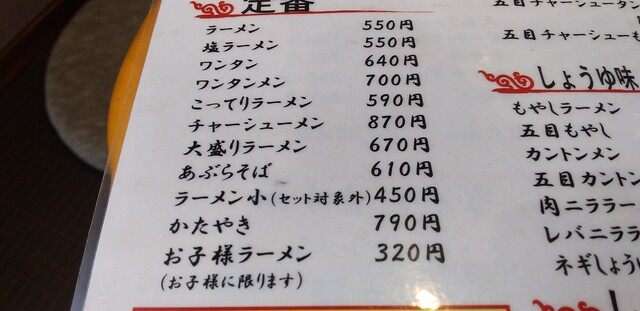 定番
ラーメン 550円
塩ラーメン 550円
ワンタン 640円
ワンタンメン 700円
こってりラーメン 590円
チャーシューメン 870円
大盛りラーメン 670円
あぶらそば 610円
ラーメン小(セット対象外) 450円
かたやき 790円
お子様ラーメン 320円
(お子様に限ります)
五目チャーシュータン
五目チャーシューも
しょうゆ味
もやしラーメン
五目もやし
カントンメン
五目カントン
肉ニララー
レバニララ
ネギしょう